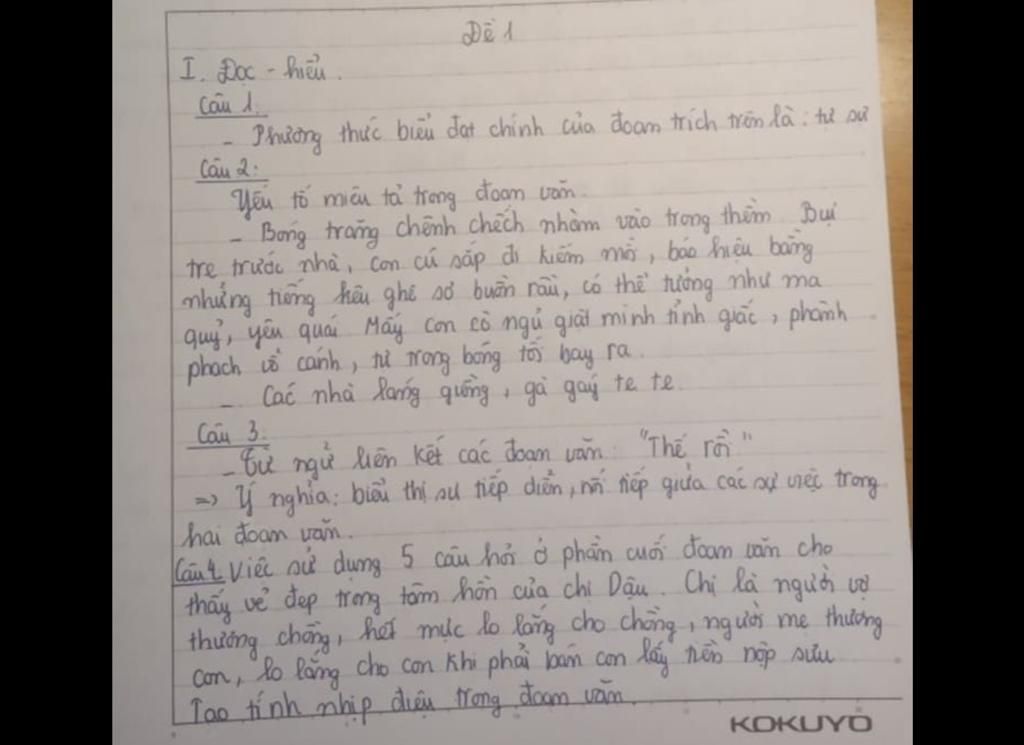 Đề 1
I. Đọc - hiểu.
Câu 1.
- Phương thức biểu đạt chính của đoạn trích trên là: tự sự
Câu 2:
Yếu tố miêu tả trong đoạn văn.
- Bóng trăng chênh chếch nhòm vào trong thềm. Bụi
tre trước nhà, con cú sắp đi kiếm mồi, báo hiệu bằng
những tiếng kêu ghê sợ buồn rầu, có thể tưởng như ma
quỷ, yêu quái. Mấy con cò ngủ giật mình tỉnh giấc, phành
phạch vỗ cánh, từ trong bóng tối bay ra.
- Các nhà láng giềng, gà gáy te te.
Câu 3:
- Từ ngữ liên kết các đoạn văn: "Thế rồi"
=> Ý nghĩa: biểu thị sự tiếp diễn, nối tiếp giữa các sự việc trong
hai đoạn văn.
Câu 4. Việc sử dụng 5 câu hỏi ở phần cuối đoạn văn cho
thấy vẻ đẹp trong tâm hồn của chị Dậu. Chị là người vợ
thương chồng, hết mực lo lắng cho chồng, người mẹ thương
con, lo lắng cho con khi phải bán con lấy tiền nộp sưu
Tạo tính nhịp điệu trong đoạn văn.
KOKUYO